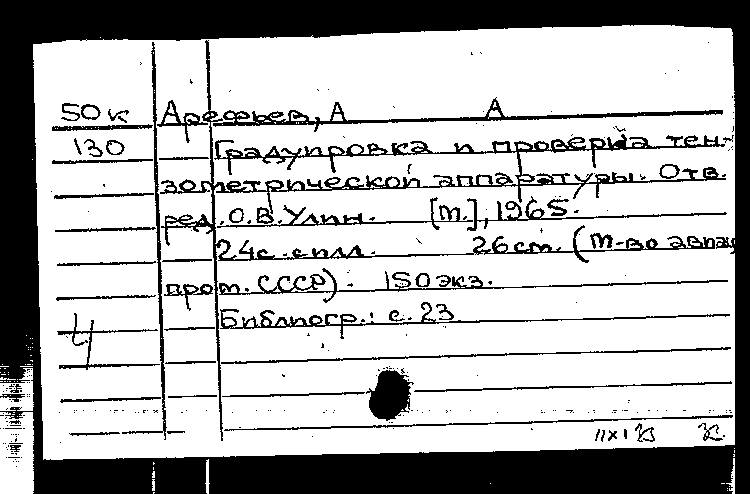 50к Арефьев, А А
130 Градуировка и проверка тен-
зометрической аппаратуры. Отв.
ред. О.В.Улин. [М.], 1965.
24с. с илл. 26см. (М-во авиац
пром. СССР). 150экз.
Библиогр.: с. 23
4